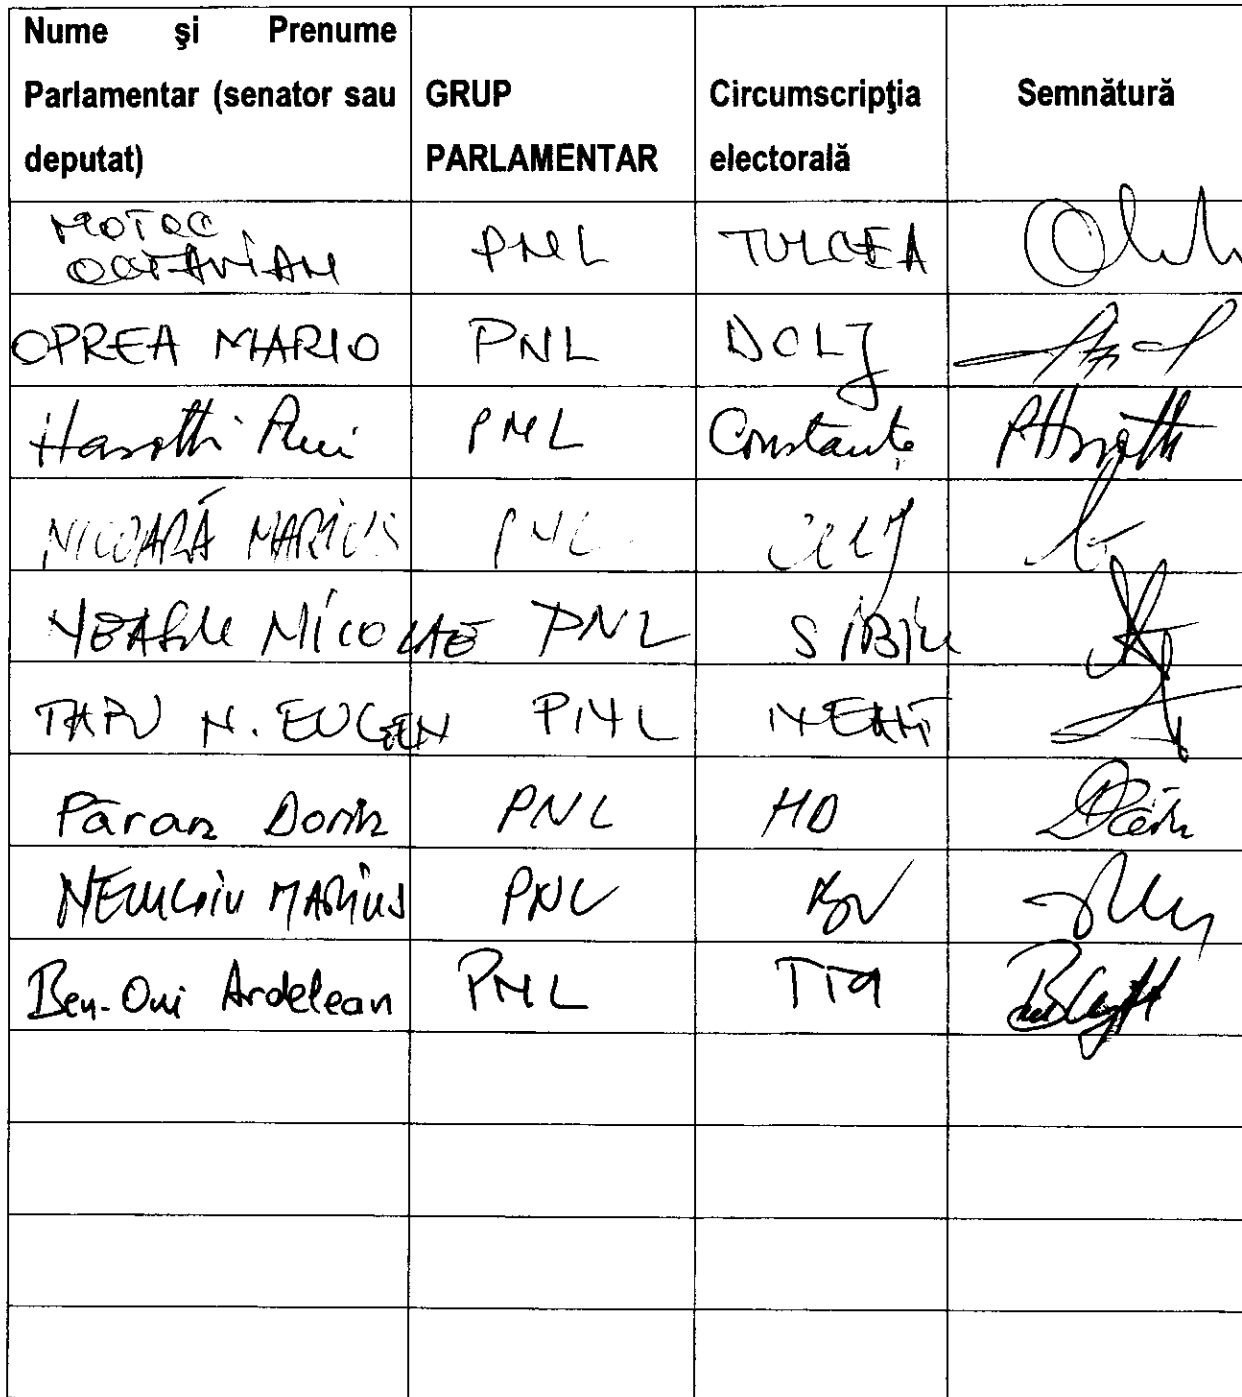 Nume şi Prenume
Parlamentar (senator sau
deputat)
GRUP
PARLAMENTAR
Circumscripţia
electorală
Semnătură
MOTOC
OCTAVIAN PNL TULCEA
OPREA MARIO PNL DOLJ
Harotti PNL Constanţa
NICOARĂ MARIUS PNL CLUJ
NEAGU NICOLAE PNL SIBIU
ŢAPU N. EUGEN PNL NEAMŢ
Păran Dorin PNL HD
NECULOIU MARIUS PNL BV
Ben-Oni Ardelean PNL